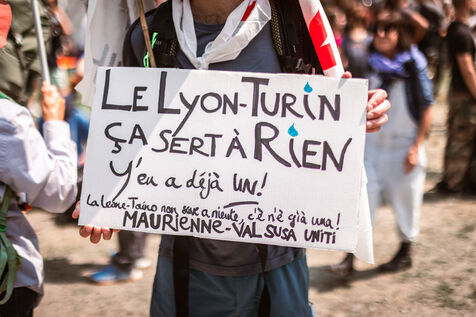 LE LYON-TURIN
ÇA SERT À RIEN
Y'en a déjà UN!
La Leone-Taino non serve a niente, c'è n'è già una!
MAURIENNE-VAL SUSA UNITI